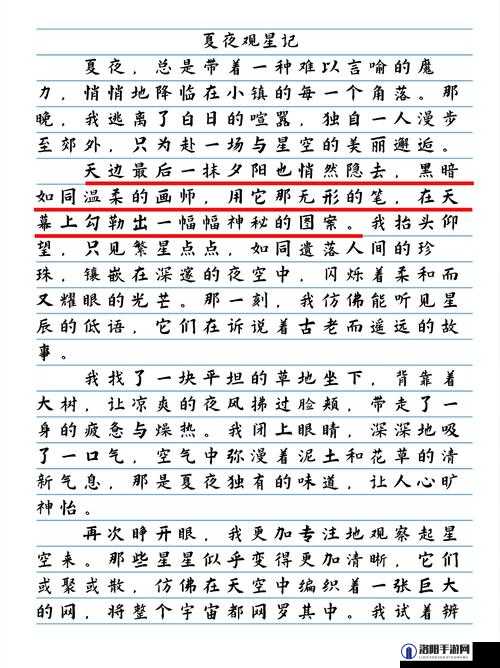 夏夜观星记
夏夜，总是带着一种难以言喻的魔
力，悄悄地降临在小镇的每一个角落。那
晚，我逃离了白日的喧嚣，独自一人漫步
至郊外，只为赴一场与星空的美丽邂逅。
天边最后一抹夕阳也悄然隐去，黑暗
如同温柔的画师，用它那无形的笔，在天
幕上勾勒出一幅幅神秘的图案。我抬头仰
望，只见繁星点点，如同遗落人间的珍
珠，镶嵌在深邃的夜空中，闪烁着柔和而
又耀眼的光芒。那一刻，我仿佛能听见星
辰的低语，它们在诉说着古老而遥远的故
事。
我找了一块平坦的草地坐下，背靠着
大树，让凉爽的夜风拂过脸颊，带走了一
身的疲惫与燥热。我闭上眼睛，深深地吸
了一口气，空气中弥漫着泥土和花草的清
新气息，那是夏夜独有的味道，让人心旷
神怡。
再次睁开眼，我更加专注地观察起星
空来。那些星星似乎变得更加清晰，它们
或聚或散，仿佛在天空中编织着一张巨大
的网，将整个宇宙都网罗其中。我试着辨
洛阳手游网